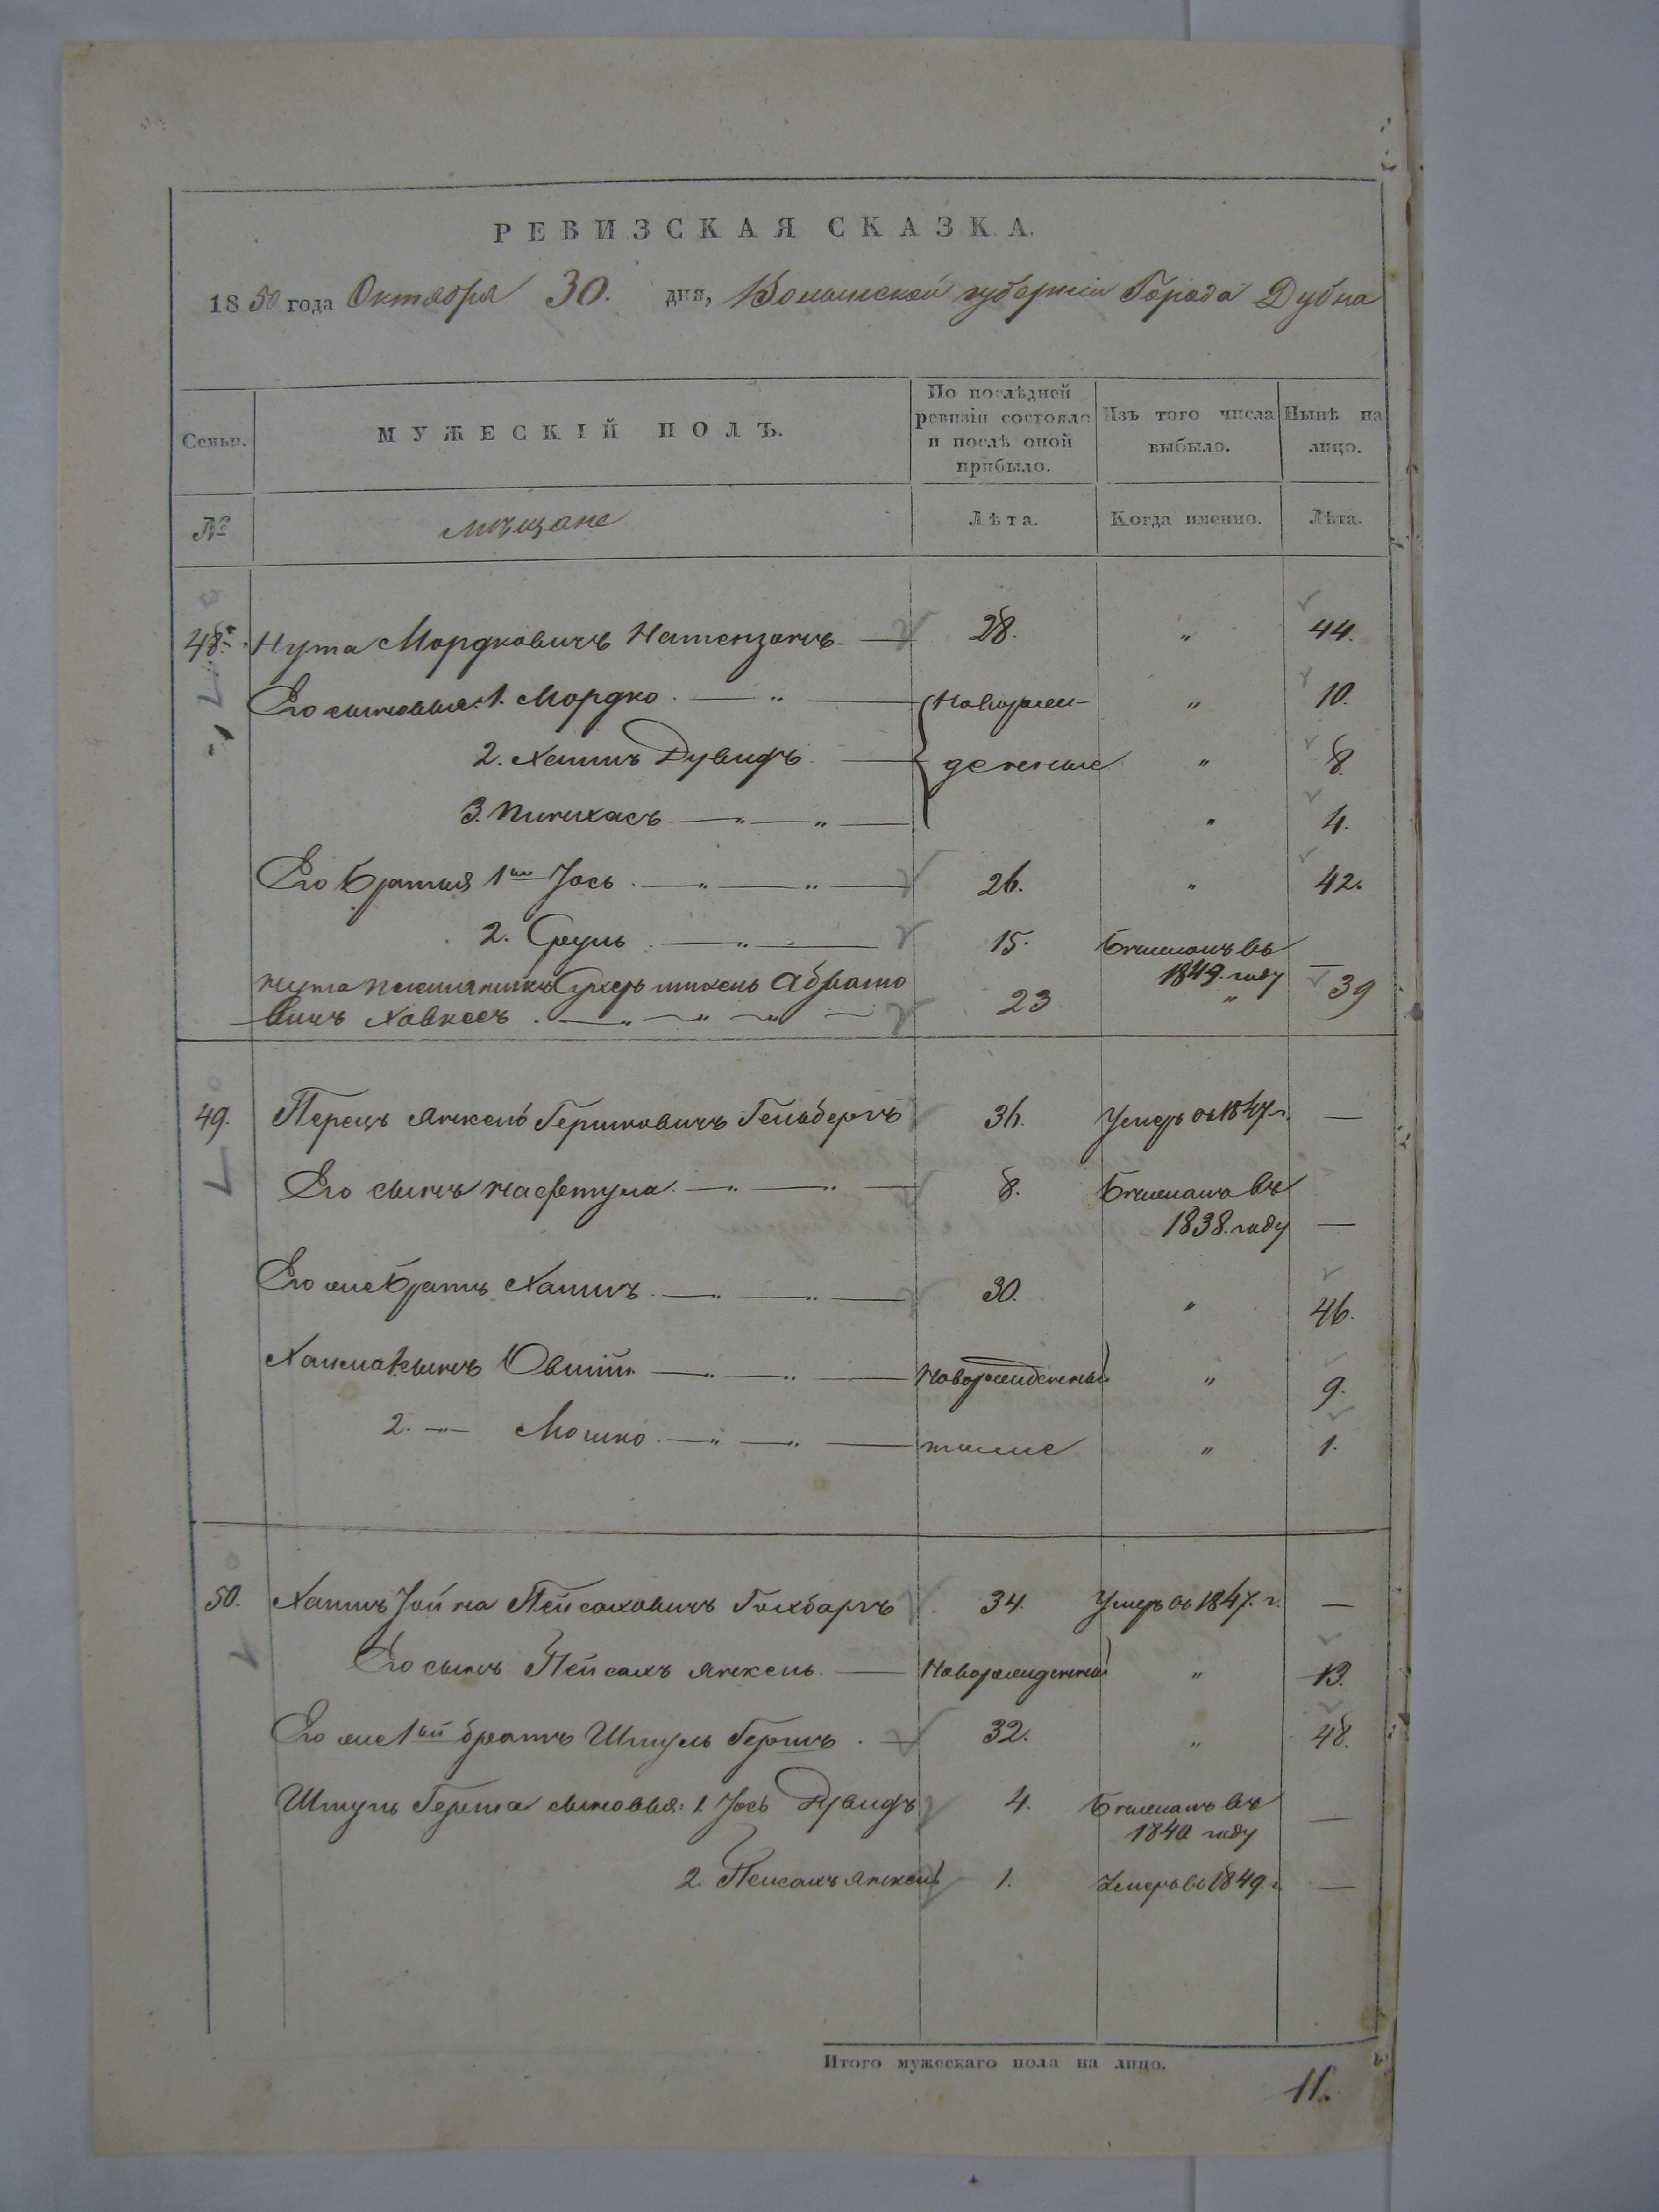 РЕВИЗСКАЯ СКАЗКА.
1850 года Октября 30. дня, Волынской губернiи Города Дубна
Семьи.
МУЖЕСКIЙ ПОЛЪ.
По послѣдней
ревизiи состояло
и послѣ оной
прибыло.
Изъ того числа
выбыло.
Нынѣ на
лицо.
№
мѣщане
Лѣта.
Когда именно.
Лѣта.
48. Нута Мордковичъ Натензонъ — 28. " 44.
Его сыновья: 1. Мордко. — " — Новорож- " 10.
2. Хаимъ Дувидъ. — денные " 8.
3. Пинихасъ — " — " — " 4.
Его братья 1ый Іось. — " — " — 26. " 42.
2. Сруль. — " — 15. Бѣжалъ въ
1849. году —
Нута племянникъ Абрамо
вичъ — " — " — " — 23 " 39
49. Перецъ Янкель Гершковичъ Гельбергъ 36. Умеръ въ 1847 г. —
Его сынъ Нафтула. — " — " — 8. Бѣжалъ въ
1838. году —
Его же братъ Хаимъ. — " — " — 30. " 46.
Хаима 1. сынъ Овшій — " — " — Новорожденный " 9.
2. — " — Мошко. — " — " — тоже " 1.
50. Хаимъ Іойна Пейсаховичъ 34. Умеръ въ 1847. г. —
Его сынъ Пейсахъ Янкель. — Новорожденный " 13.
Его же 1ый братъ Шмуль Гершъ. — 32. " 48.
Шмуль Герша сыновья: 1. Іось Дувидъ 4. Бѣжалъ въ
1840 году —
2. Пейсахъ Янкель 1. Умеръ въ 1849. г. —
Итого мужескаго пола на лицо.
11.